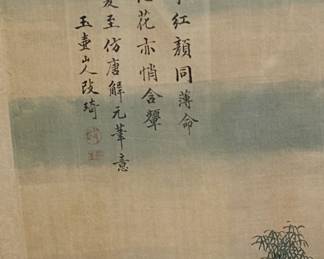 紅顏同薄命
花亦悄含顰
至仿唐解元筆意
玉壺山人改琦